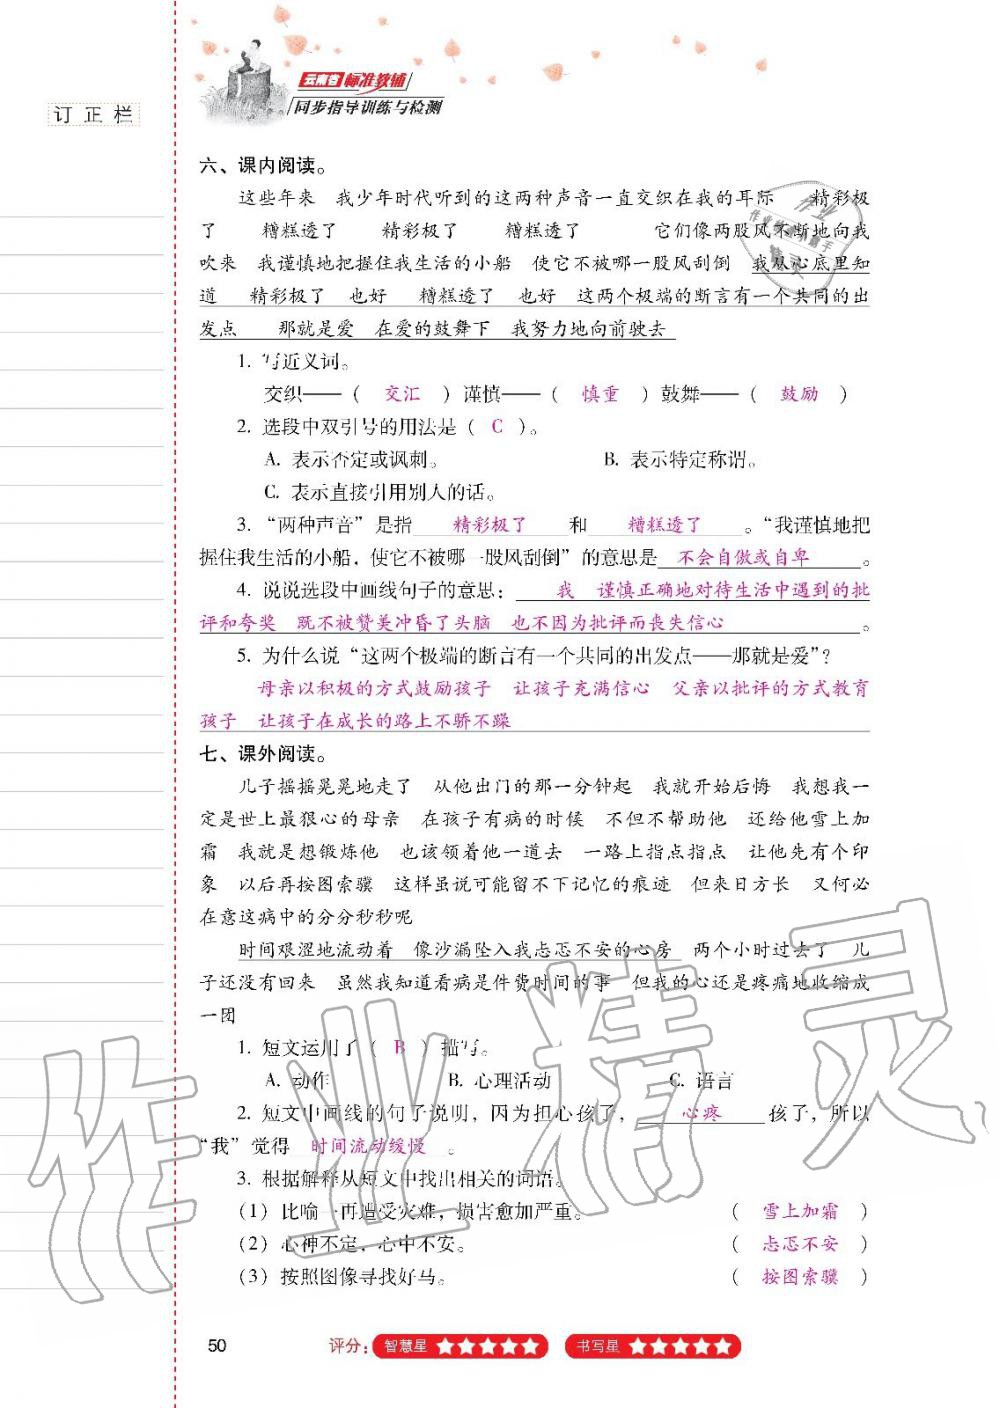 云南省标准教辅
同步指导训练与检测
订正栏
六、课内阅读。
这些年来 我少年时代听到的这两种声音一直交织在我的耳际 精彩极
了 糟糕透了 精彩极了 糟糕透了 它们像两股风不断地向我
吹来 我谨慎地把握住我生活的小船 使它不被哪一股风刮倒 我从心底里知
道 精彩极了 也好 糟糕透了 也好 这两个极端的断言有一个共同的出
发点 那就是爱 在爱的鼓舞下 我努力地向前驶去
1. 写近义词。
交织——（ 交汇 ）谨慎——（ 慎重 ）鼓舞——（ 鼓励 ）
2. 选段中双引号的用法是（ C ）。
A. 表示否定或讽刺。 B. 表示特定称谓。
C. 表示直接引用别人的话。
3. “两种声音”是指 精彩极了 和 糟糕透了 。“我谨慎地把
握住我生活的小船，使它不被哪一股风刮倒”的意思是 不会自傲或自卑 。
4. 说说选段中画线句子的意思： 我 谨慎正确地对待生活中遇到的批
评和夸奖 既不被赞美冲昏了头脑 也不因为批评而丧失信心 。
5. 为什么说“这两个极端的断言有一个共同的出发点——那就是爱”？
母亲以积极的方式鼓励孩子 让孩子充满信心 父亲以批评的方式教育
孩子 让孩子在成长的路上不骄不躁
七、课外阅读。
儿子摇摇晃晃地走了 从他出门的那一分钟起 我就开始后悔 我想我一
定是世上最狠心的母亲 在孩子有病的时候 不但不帮助他 还给他雪上加
霜 我就是想锻炼他 也该领着他一道去 一路上指点指点 让他先有个印
象 以后再按图索骥 这样虽说可能留不下记忆的痕迹 但来日方长 又何必
在意这病中的分分秒秒呢
时间艰涩地流动着 像沙漏坠入我忐忑不安的心房 两个小时过去了 儿
子还没有回来 虽然我知道看病是件费时间的事 但我的心还是疼痛地收缩成
一团
1. 短文运用了（ B ）描写。
A. 动作 B. 心理活动 C. 语言
2. 短文中画线的句子说明，因为担心孩子， 心疼 孩子，所以
“我”觉得 时间流动缓慢 。
3. 根据解释从短文中找出相关的词语。
（1）比喻一再遭受灾难，损害愈加严重。 （ 雪上加霜 ）
（2）心神不定，心中不安。 （ 忐忑不安 ）
（3）按照图像寻找好马。 （ 按图索骥 ）
50 评分： 智慧星 书写星
作业精灵